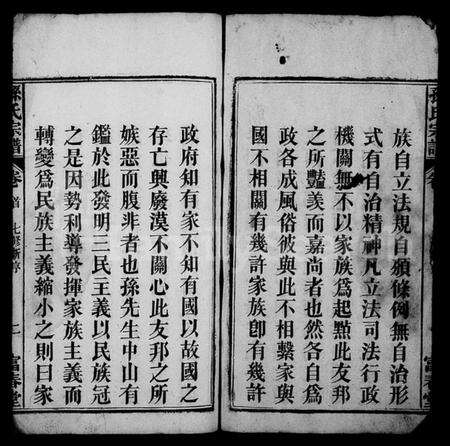 族自立法規自頒條例無自治形
式有自治精神凡立法司法行政
機關無不以家族爲起點此友邦
之所豔羡而嘉尚者也然各自爲
政各成風俗彼與此不相繫家與
國不相關有幾許家族卽有幾許
政府知有家不知有國以故國之
存亡興廢漠不關心此友邦之所
嫉惡而腹非者也孫先生中山有
鑑於此發明三民主義以民族冠
之是因勢利導發揮家族主義而
轉變爲民族主義縮小之則曰家
孫氏宗譜 卷首 七修新序 二 富春堂